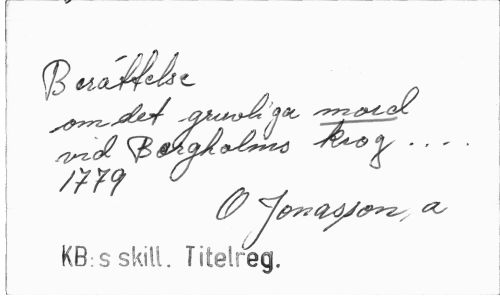 Berättelse
om det gruvliga mord
vid Borgholms krog ....
1779
O Jonasson, a
KB:s skill. Titelreg.